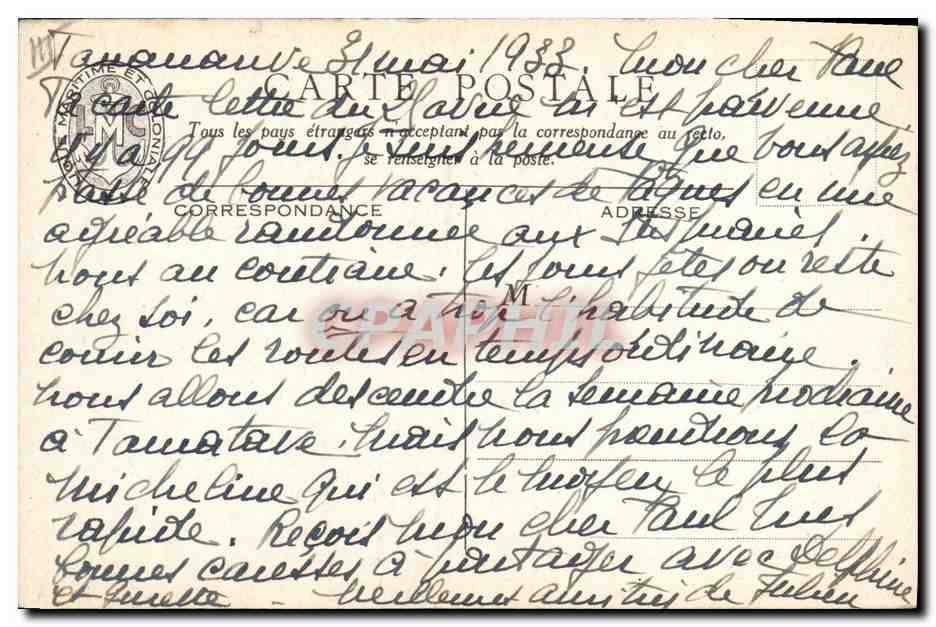 Tananarive 31 mai 1933. Mon cher Paul
CARTE POSTALE
Ta carte lettre du avril m'est parvenue
Tous les pays étrangers n'acceptant pas la correspondance au recto,
il y a jours. Je suis heureuse que vous ayez
se renseigner à la poste.
passé de bonnes vacances de Pâques en une
CORRESPONDANCE ADRESSE
agréable randonnée aux
LIGUE MARITIME ET COLONIALE
LMC
Nous au contraire, les jours fêtes on reste
M
chez soi, car on a trop l'habitude de
CPAPHIL
courir les routes en temps ordinaire.
Nous allons descendre la semaine prochaine
à Tamatave. Mais nous prendrons la
Micheline qui est le moyen le plus
rapide. Reçois mon cher Paul mes
bonnes caresses à partager avec Delphine
et Ginette - Meilleures amitiés de Julien